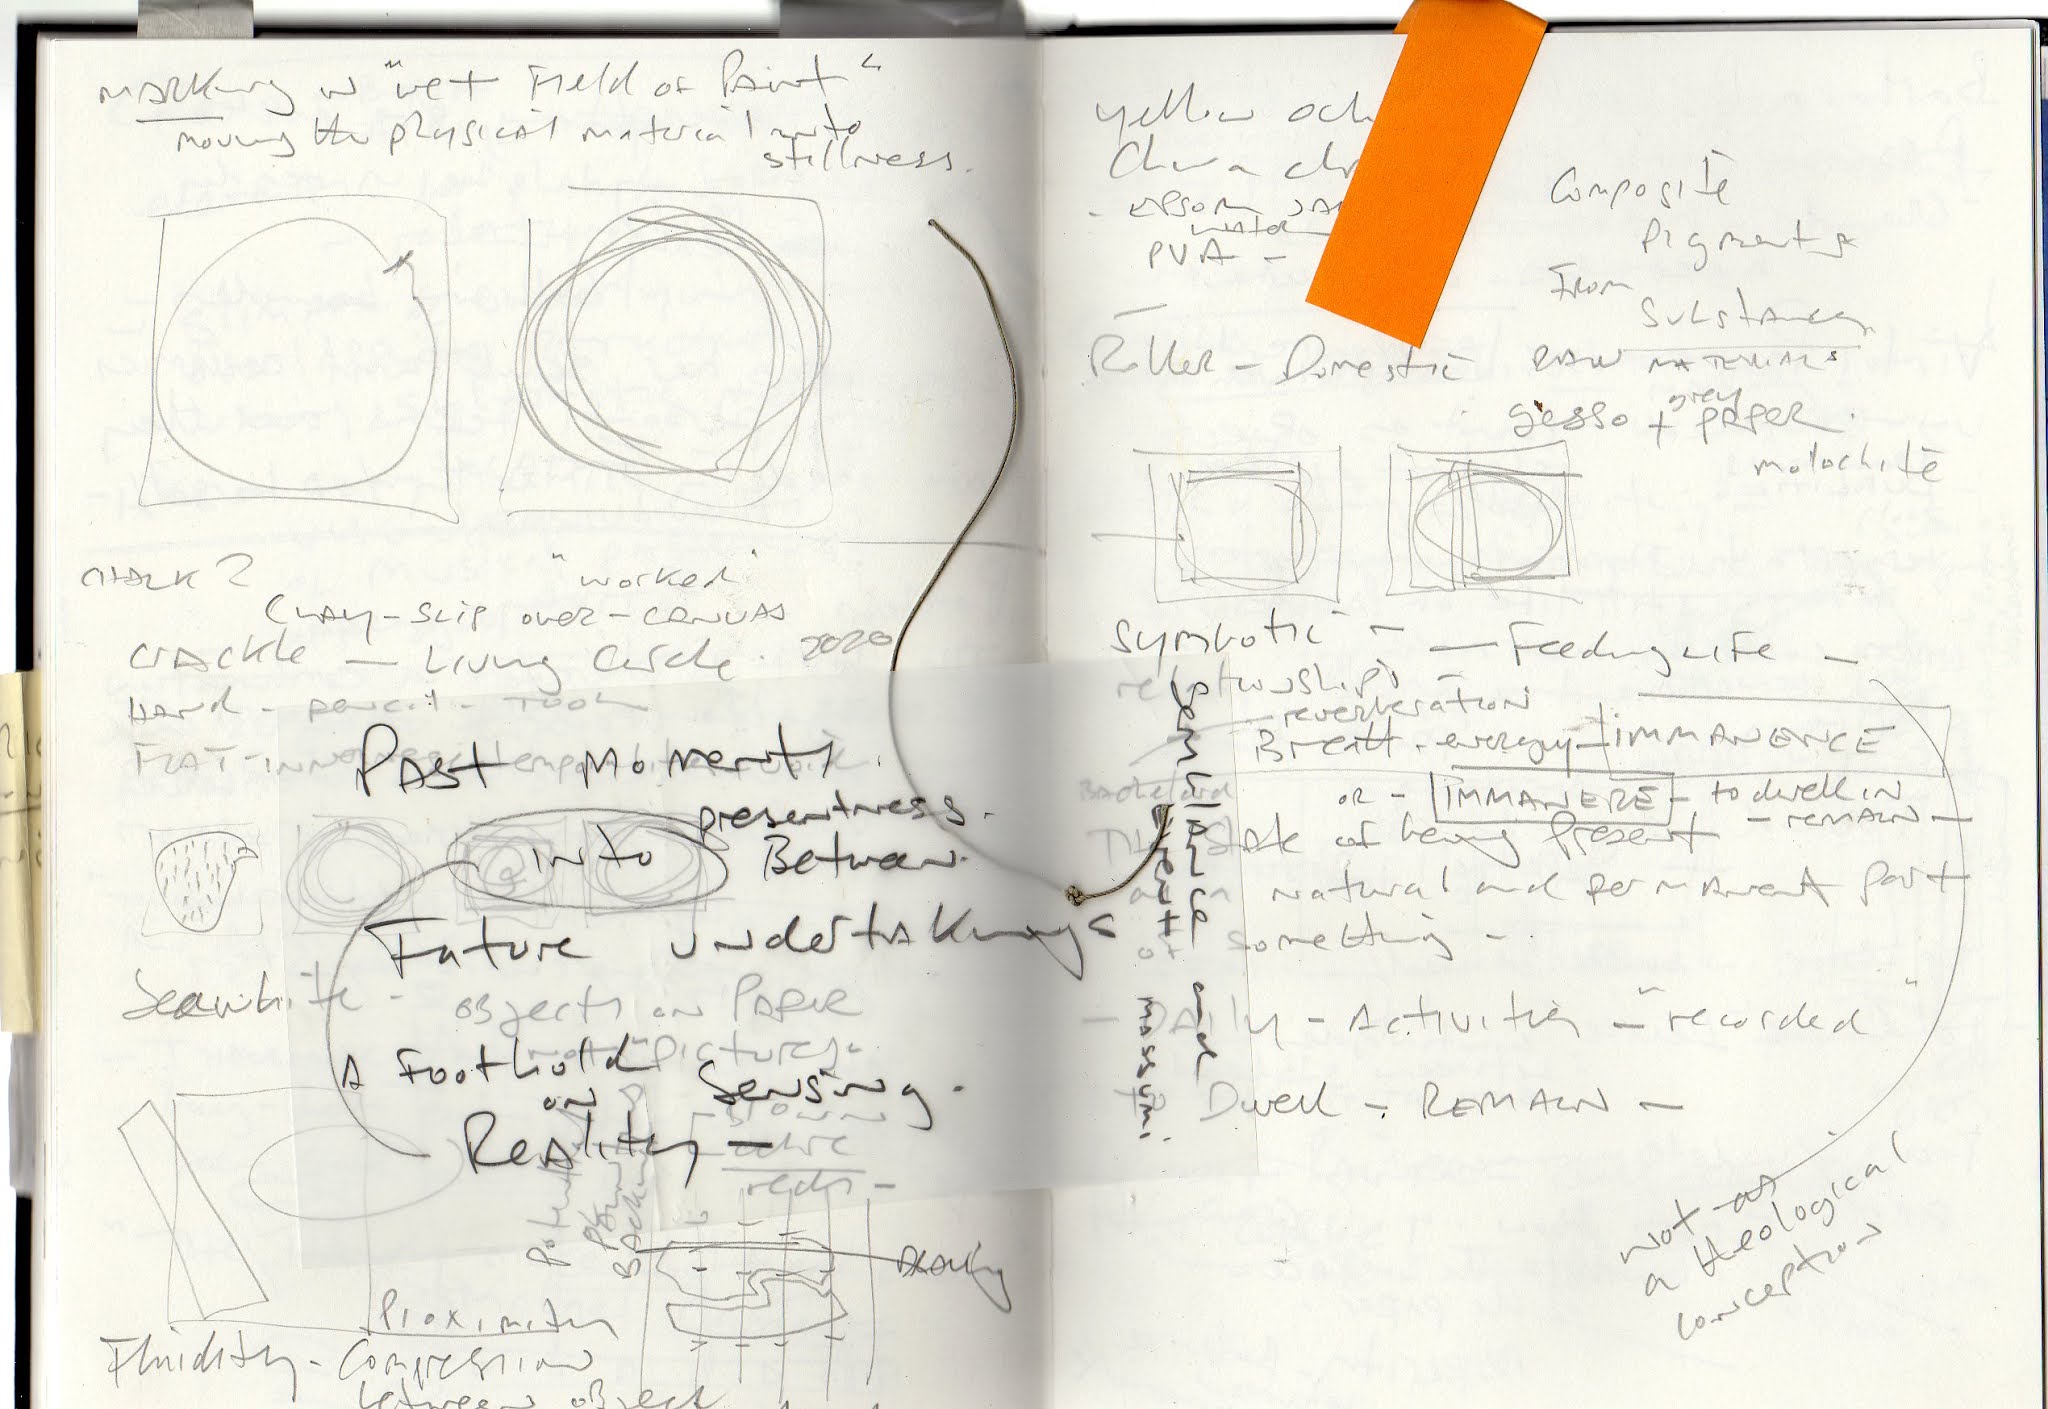 marking in "wet Field of Paint"
moving the physical material into
stillness.
CHALK?
"worked"
Clay-slip over-canvas
crackle — Living Circle. 2020
Hand - pencil - Tool
Past Moments.
into
presentness.
Between.
Future undertakings
Seawhite -
objects on PAPER
pictures.
A Foothold
on Sensing.
Reality -
reds -
Drawing
Proximity
Fluidity - Compression
between object
yellow
China
PVA -
Composite
Pigments
From
Substances
Roller - Domestic
RAW MATERIALS
gesso + grey PAPER.
molochite
Symbiotic - — Feeding Life —
relationships
reverberation
Breath - energy - IMMANENCE
Bachelard
or - IMMANERE - to dwell in
- remain -
The state of being present
natural and permanent part
of something -
Semblance and
event
MASSUMI.
- Daily - Activities - "recorded"
Dwell - REMAIN -
not as
a theological
conception